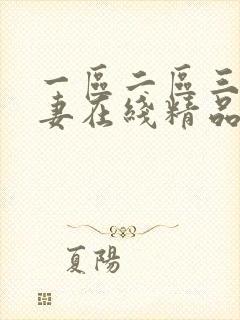 一區二區三
妻在綫精品
夏陽